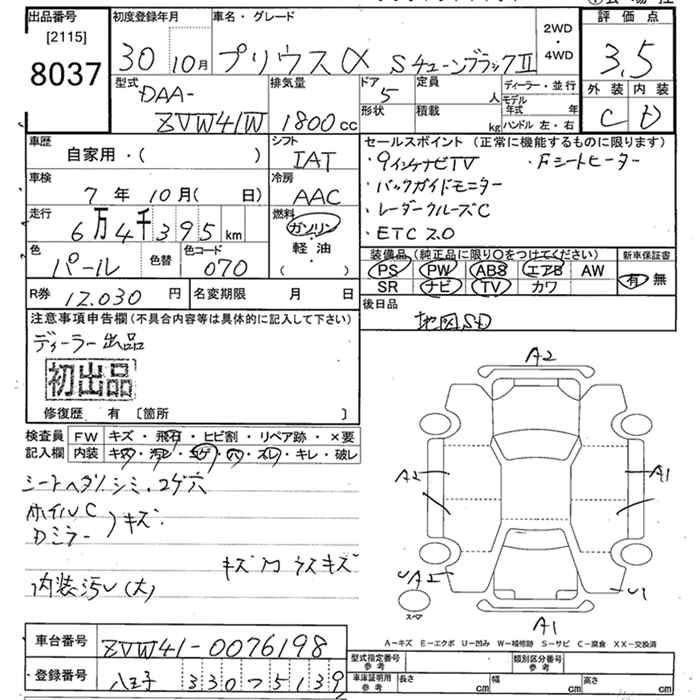 出品番号
[2115]
8037
初度登録年月
30 10月
車名・グレード
プリウスα SチューンブラックⅡ
2WD
・
4WD
評価点
3.5
外装 内装
C D
型式
DAA-
ZVW41W
排気量
1800cc
ドア
5
形状
定員
人
積載
kg
ディーラー・並行
モデル年式 年
ハンドル 左・右
車歴
自家用・( )
シフト
IAT
車検
7年10月( 日)
冷房
AAC
走行
6万4千395km
燃料
ガソリン
・
軽油
・
( )
色
パール
色替
色コード
070
R券 12.030円
名変期限 月 日
セールスポイント(正常に機能するものに限ります)
・9インチナビTV ・Fシートヒーター
・バックガイドモニター
・レーダークルーズC
・ETC2.0
装備品(純正品に限り〇をつけてください)
PS PW ABS エアB AW
SR ナビ TV カワ
新車保証書
有・無
後日品
地図SD
注意事項申告欄(不具合内容等は具体的に記入して下さい)
ディーラー出品
初出品
修復歴 有〔箇所 〕
検査員記入欄
FW キズ・飛石・ヒビ割・リペア跡・×要
内装 キズ・汚レ・コゲ・穴・スレ・キレ・破レ
シートヘタリシミ、コゲ穴
ホイルC
Dミラー
)キズ
キズ
ウスキズ
内装汚レ(大)
A2
A2
A1
A2
U1
A1
スペア
A-キズ E-エクボ U-凹み W-補修跡 S-サビ C-腐食 XX-交換済
車台番号
ZVW41-0076198
登録番号
八王子 330 75139
型式指定番号
参考
類別区分番号
参考
車庫証明用
参考
長さ cm
幅 cm
高さ cm